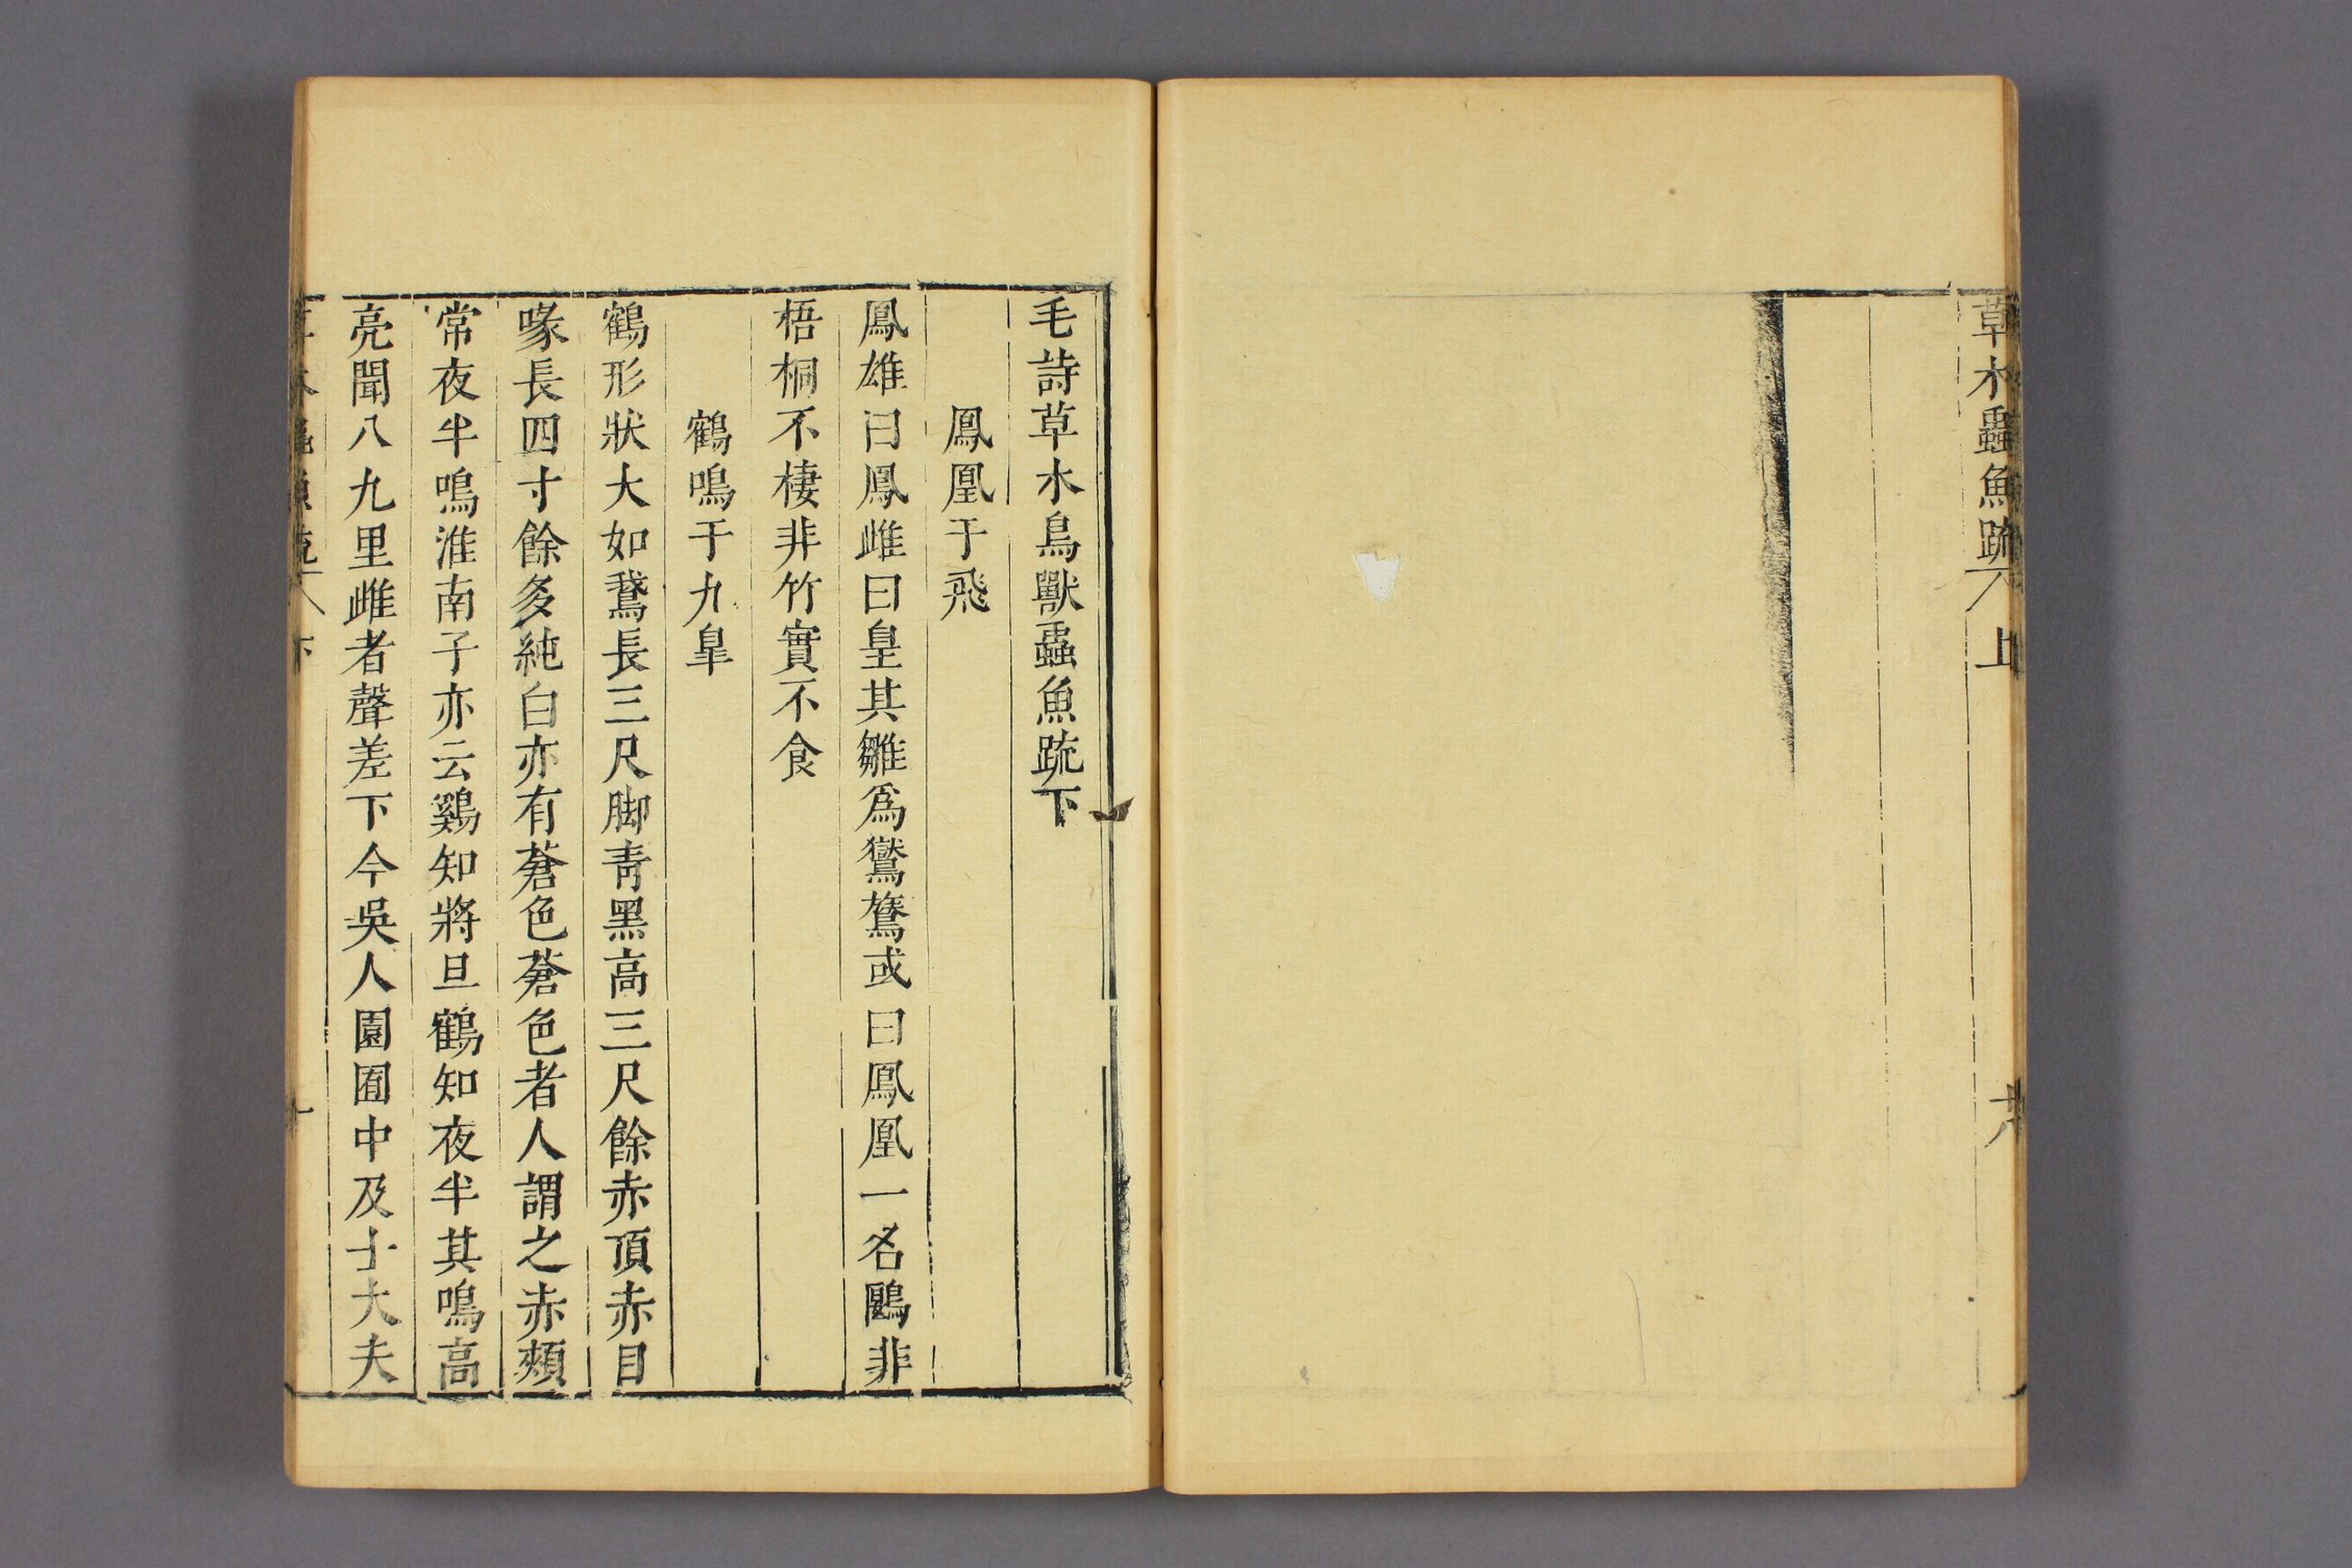 草木蟲魚疏
上
十八
毛詩草木鳥獸蟲魚疏下
鳳凰于飛
鳳雄曰鳳雌曰皇其雛爲鸑鷟或曰鳳凰一名鶠非
梧桐不棲非竹實不食
鶴鳴于九臯
鶴形狀大如鵞長三尺脚青黑高三尺餘赤頂赤目
喙長四寸餘多純白亦有蒼色蒼色者人謂之赤頰
常夜半鳴淮南子亦云鷄知將旦鶴知夜半其鳴高
亮聞八九里雌者聲差下今吳人園囿中及士大夫
下
一